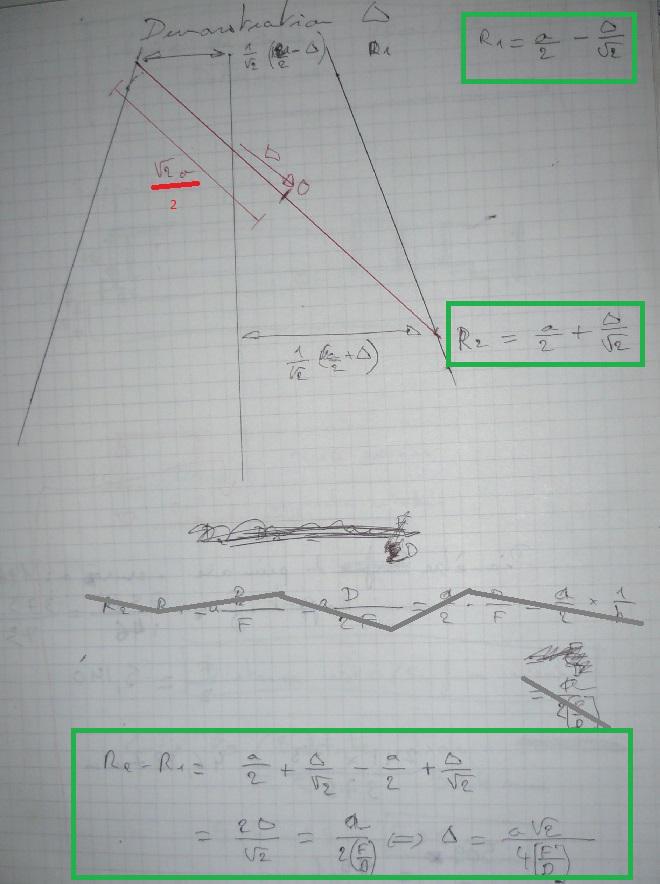 Demonstration Δ
1/√2 (a/2 - Δ) R1
R1 = a/2 - Δ/√2
Δ
O
√2 a
2
R2 = a/2 + Δ/√2
1/√2 (a/2 + Δ)
D/2F = a/2 . D/F = a/2 ×
R2 - R1 = a/2 + Δ/√2 - a/2 + Δ/√2
= 2Δ/√2 = a/2(F/D) <=> Δ = a√2/4[F/D]